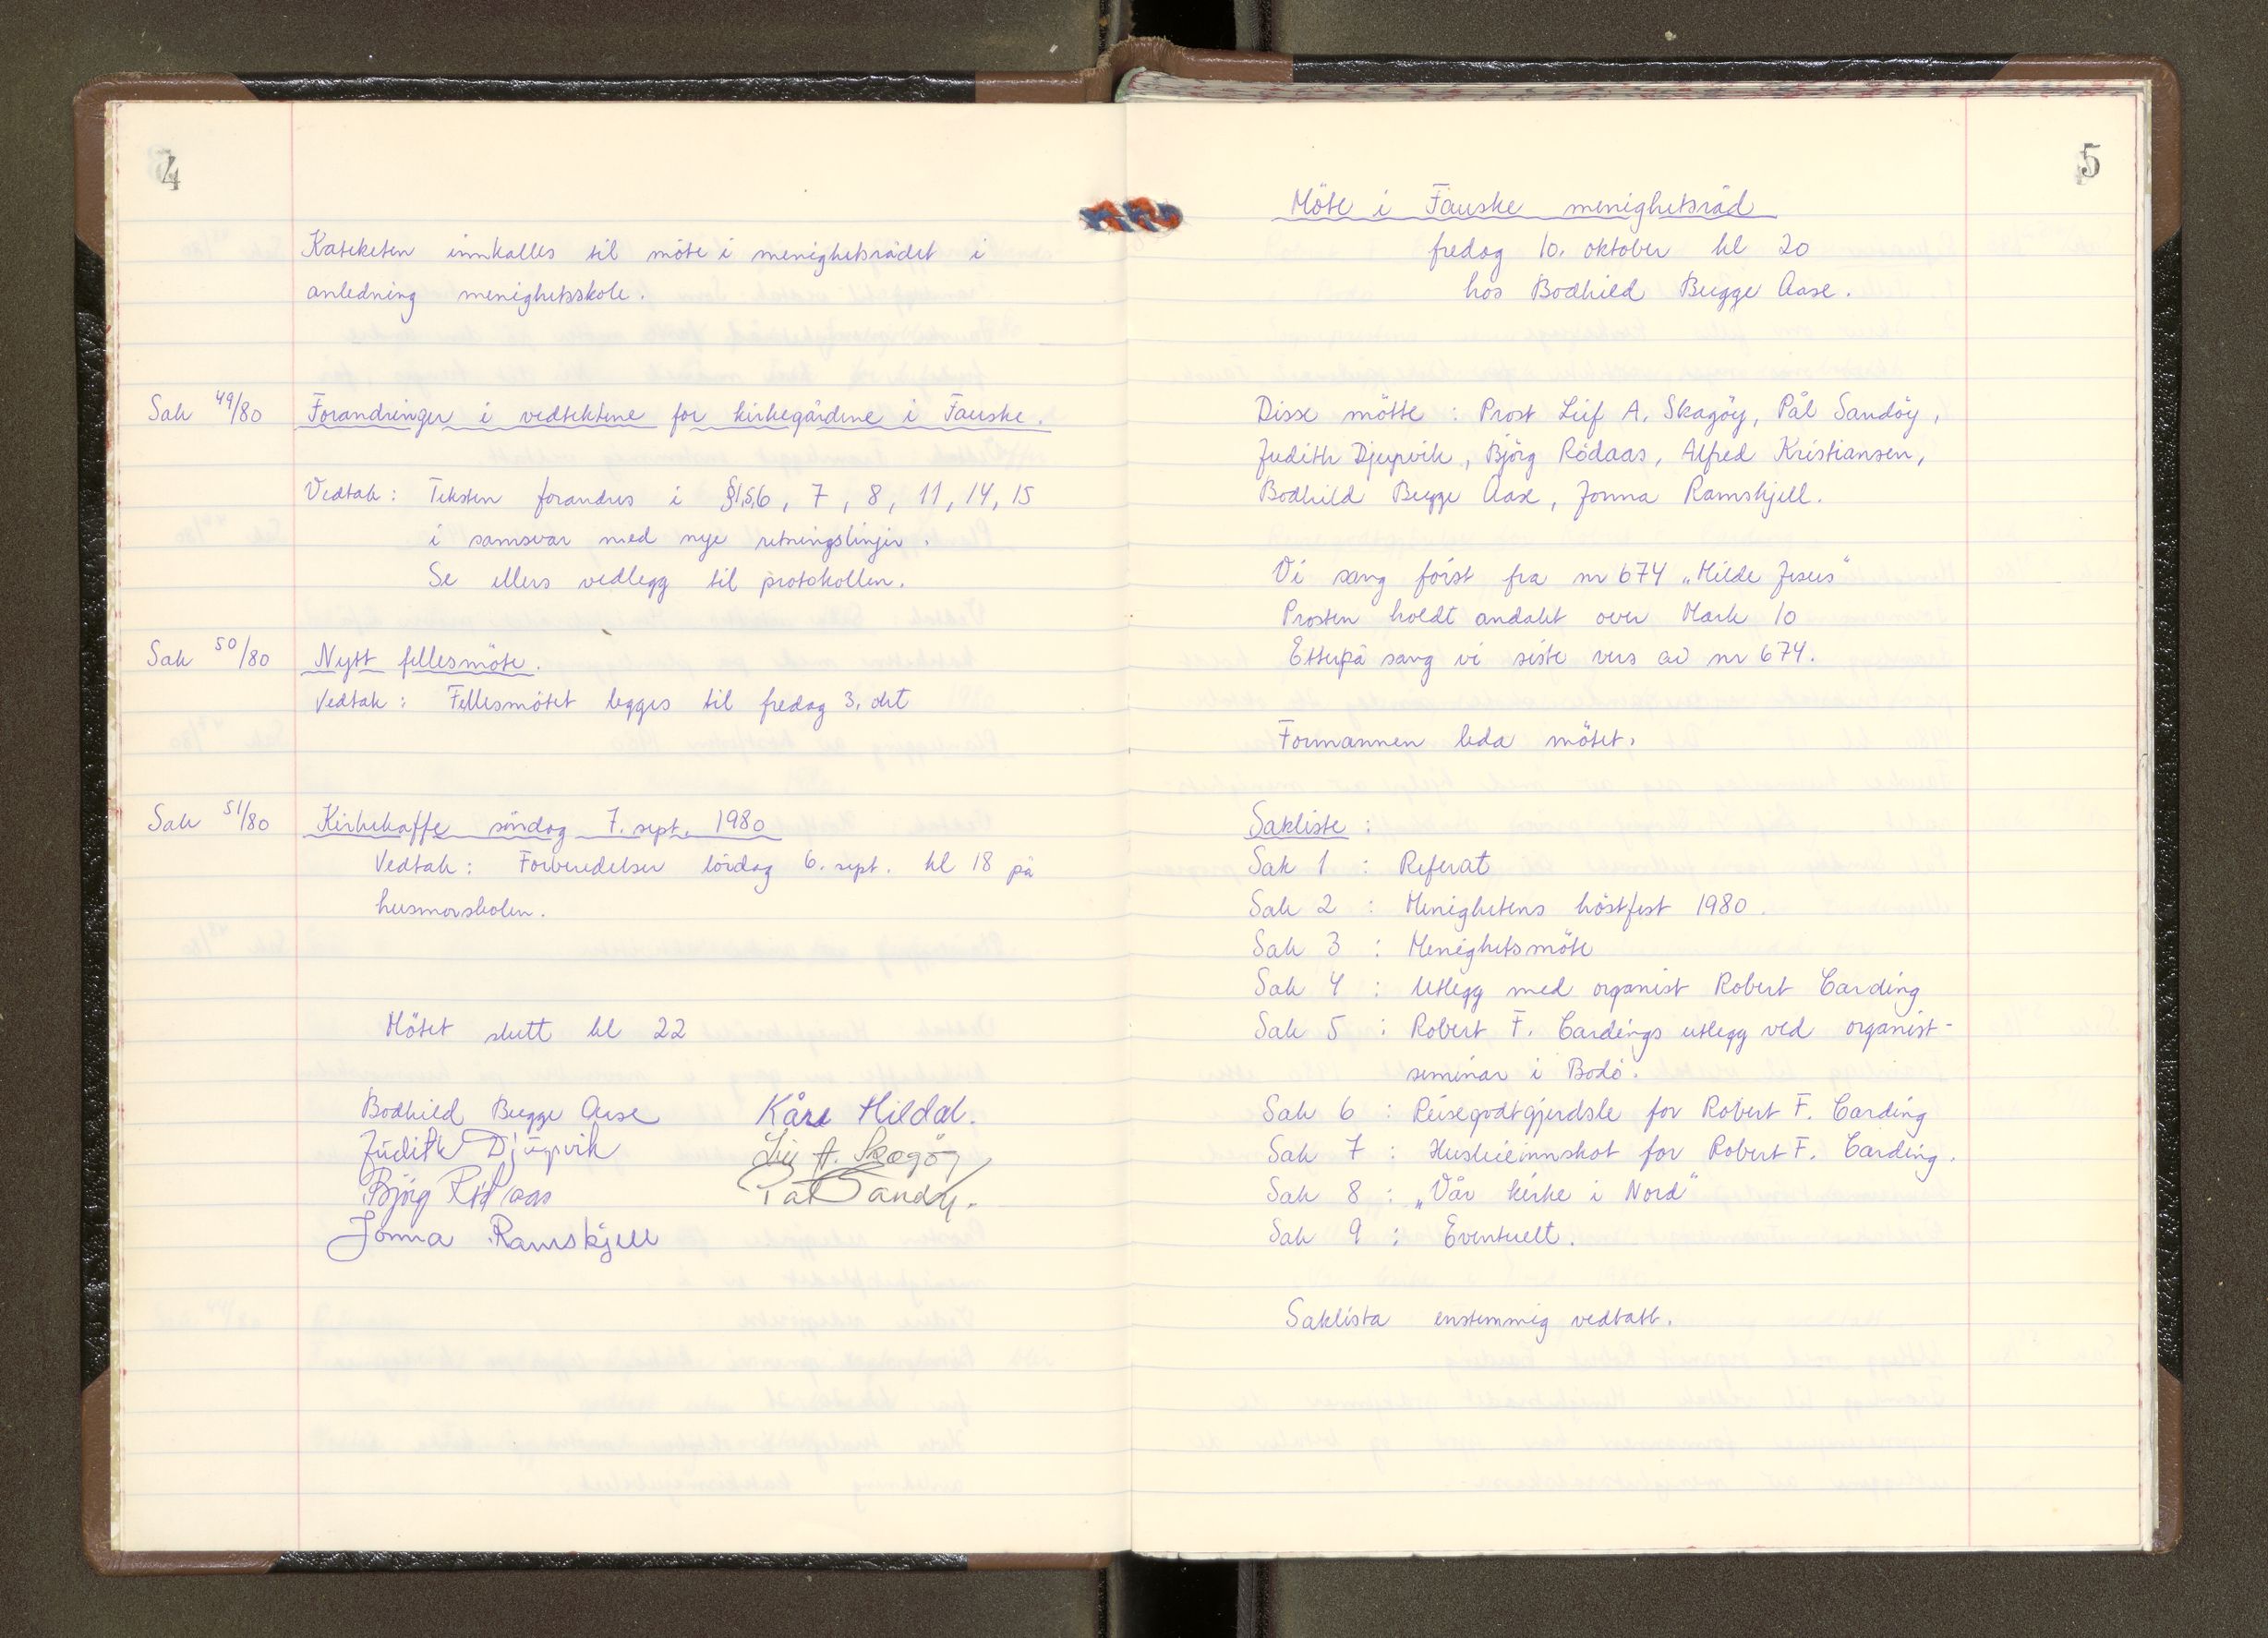 4
Kateketen innkalles til möte i menighetsrådet i
anledning menighetsskole.
Sak 49/80 Forandringer i vedtektene for kirkegårdene i Fauske.
Vedtak: Teksten forandres i §1,5,6, 7, 8, 11, 14, 15
i samsvar med nye retningslinjer.
Se ellers vedlegg til protokollen.
Sak 50/80 Nytt fellesmöte.
Vedtak: Fellesmötet legges til fredag 3. okt
Sak 51/80 Kirkekaffe söndag 7. sept. 1980
Vedtak: Forberedelser lördag 6. sept. kl 18 på
husmorskolen.
Mötet slutt kl 22
Bodhild Bugge Aase Kåre Hildal.
Judith Djupvik Leif A. Skagöy
Björg Rödaas Pål Sandöy.
Jonna Ramskjell
5
Möte i Fauske menighetsråd
fredag 10. oktober kl 20
hos Bodhild Bugge Aase.
Disse mötte: Prost Leif A. Skagöy, Pål Sandöy,
Judith Djupvik, Björg Rödaas, Alfred Kristiansen,
Bodhild Bugge Aase, Jonna Ramskjell.
Vi sang först fra nr 674 „Milde Jesus"
Prosten holdt andakt over Mark 10
Etterpå sang vi siste vers av nr 674.
Formannen leda mötet.
Sakliste:
Sak 1 : Referat
Sak 2 : Menighetens höstfest 1980.
Sak 3 : Menighetsmöte
Sak 4 : Utlegg med organist Robert Carding
Sak 5 : Robert F. Cardings utlegg ved organist-
seminar i Bodö.
Sak 6 : Reisegodtgjerdsle for Robert F. Carding
Sak 7 : Husleieinnskot for Robert F. Carding.
Sak 8 : „Vår kirke i Nord"
Sak 9 : Eventuelt.
Saklista enstemmig vedtatt.